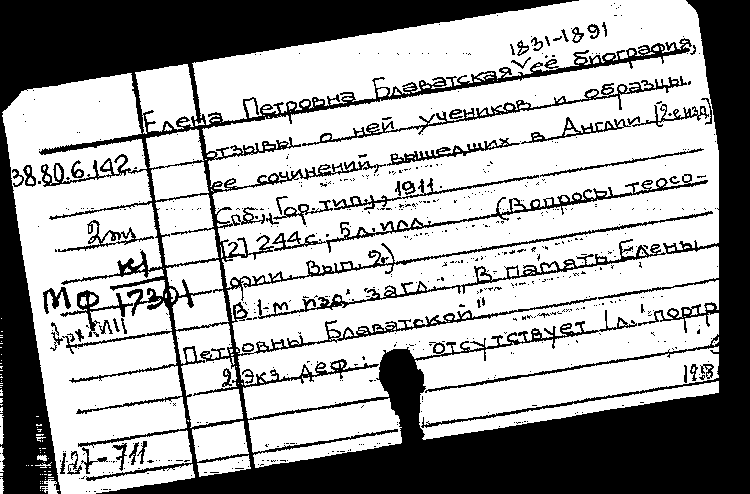 1831-1891
Елена Петровна Блаватская, её биография,
отзывы о ней учеников и образцы
38.80.6.142.
ее сочинений, вышедших в Англии. [2-е изд]
Спб., Гор. тип., 1911.
[2], 244 с.; 5 л. илл. (Вопросы теосо-
фии. Вып. 2)
МФ К1/17301
В 1-м изд. загл.: "В память Елены
Петровны Блаватской"
2 экз. деф.: отсутствует 1 л. портр
127-711.